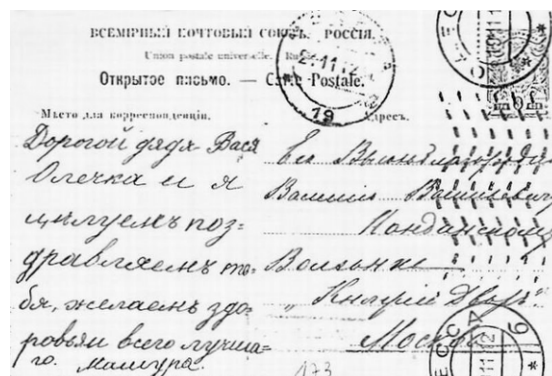 ВСЕМІРНЫЙ ПОЧТОВЫЙ СОЮЗЪ. РОССІЯ.
Union postale universelle.
Открытое письмо. — Carte Postale.
Мѣсто для корреспонденціи.
Адресъ.
Дорогой дядя Вася
Олечка и я
цѣлуемъ поз=
дравляемъ те=
бя, желаемъ здо=
ровья и всего лучша=
го.
Василію Васильевичу
Кандинскому
Волхонка
„Княжій Дворъ"
Москва
2.11.12
19
173